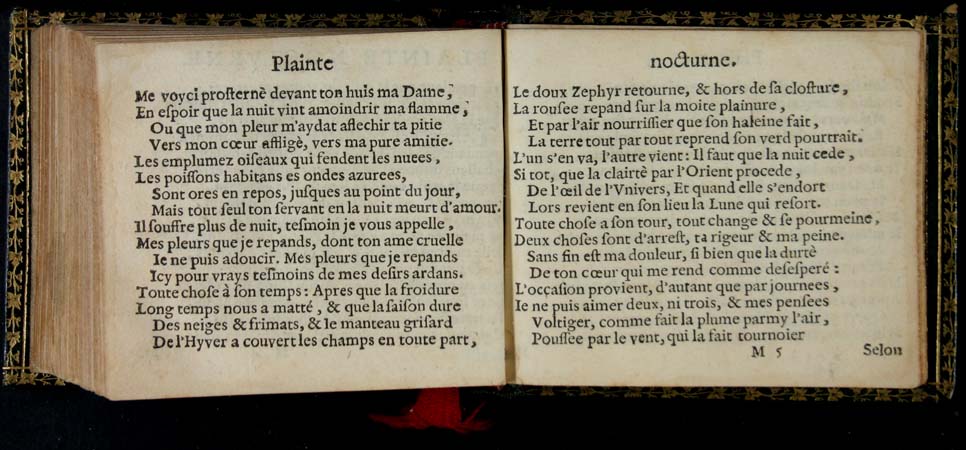 Plainte
Me voyci prosternè devant ton huis ma Dame,
En espoir que la nuit vint amoindrir ma flamme,
Ou que mon pleur m'aydat aflechir ta pitie
Vers mon cœur affligè, vers ma pure amitie.
Les emplumez oiseaux qui fendent les nuees,
Les poissons habitans es ondes azurees,
Sont ores en repos, jusques au point du jour,
Mais tout seul ton servant en la nuit meurt d'amour.
Il souffre plus de nuit, tesmoin je vous appelle,
Mes pleurs que je repands, dont ton ame cruelle
Ie ne puis adoucir. Mes pleurs que je repands
Icy pour vrays tesmoins de mes desirs ardans.
Toute chose à son temps: Apres que la froidure
Long temps nous a matté, & que la saison dure
Des neiges & frimats, & le manteau grisard
De l'Hyver a couvert les champs en toute part,
nocturne.
Le doux Zephyr retourne, & hors de sa closture,
La rousee repand sur la moite plainure,
Et par l'air nourrissier que son haleine fait,
La terre tout par tout reprend son verd pourtrait.
L'un s'en va, l'autre vient: Il faut que la nuit cede,
Si tot, que la clairtè par l'Orient procede,
De l'œil de l'Vnivers, Et quand elle s'endort
Lors revient en son lieu la Lune qui resort.
Toute chose a son tour, tout change & se pourmeine,
Deux choses sont d'arrest, ta rigeur & ma peine.
Sans fin est ma douleur, si bien que la durtè
De ton cœur qui me rend comme desesperé:
L'occasion provient, d'autant que par journees,
Ie ne puis aimer deux, ni trois, & mes pensees
Voltiger, comme fait la plume parmy l'air,
Poussée par le vent, qui la fait tournoier
M 5
Selon